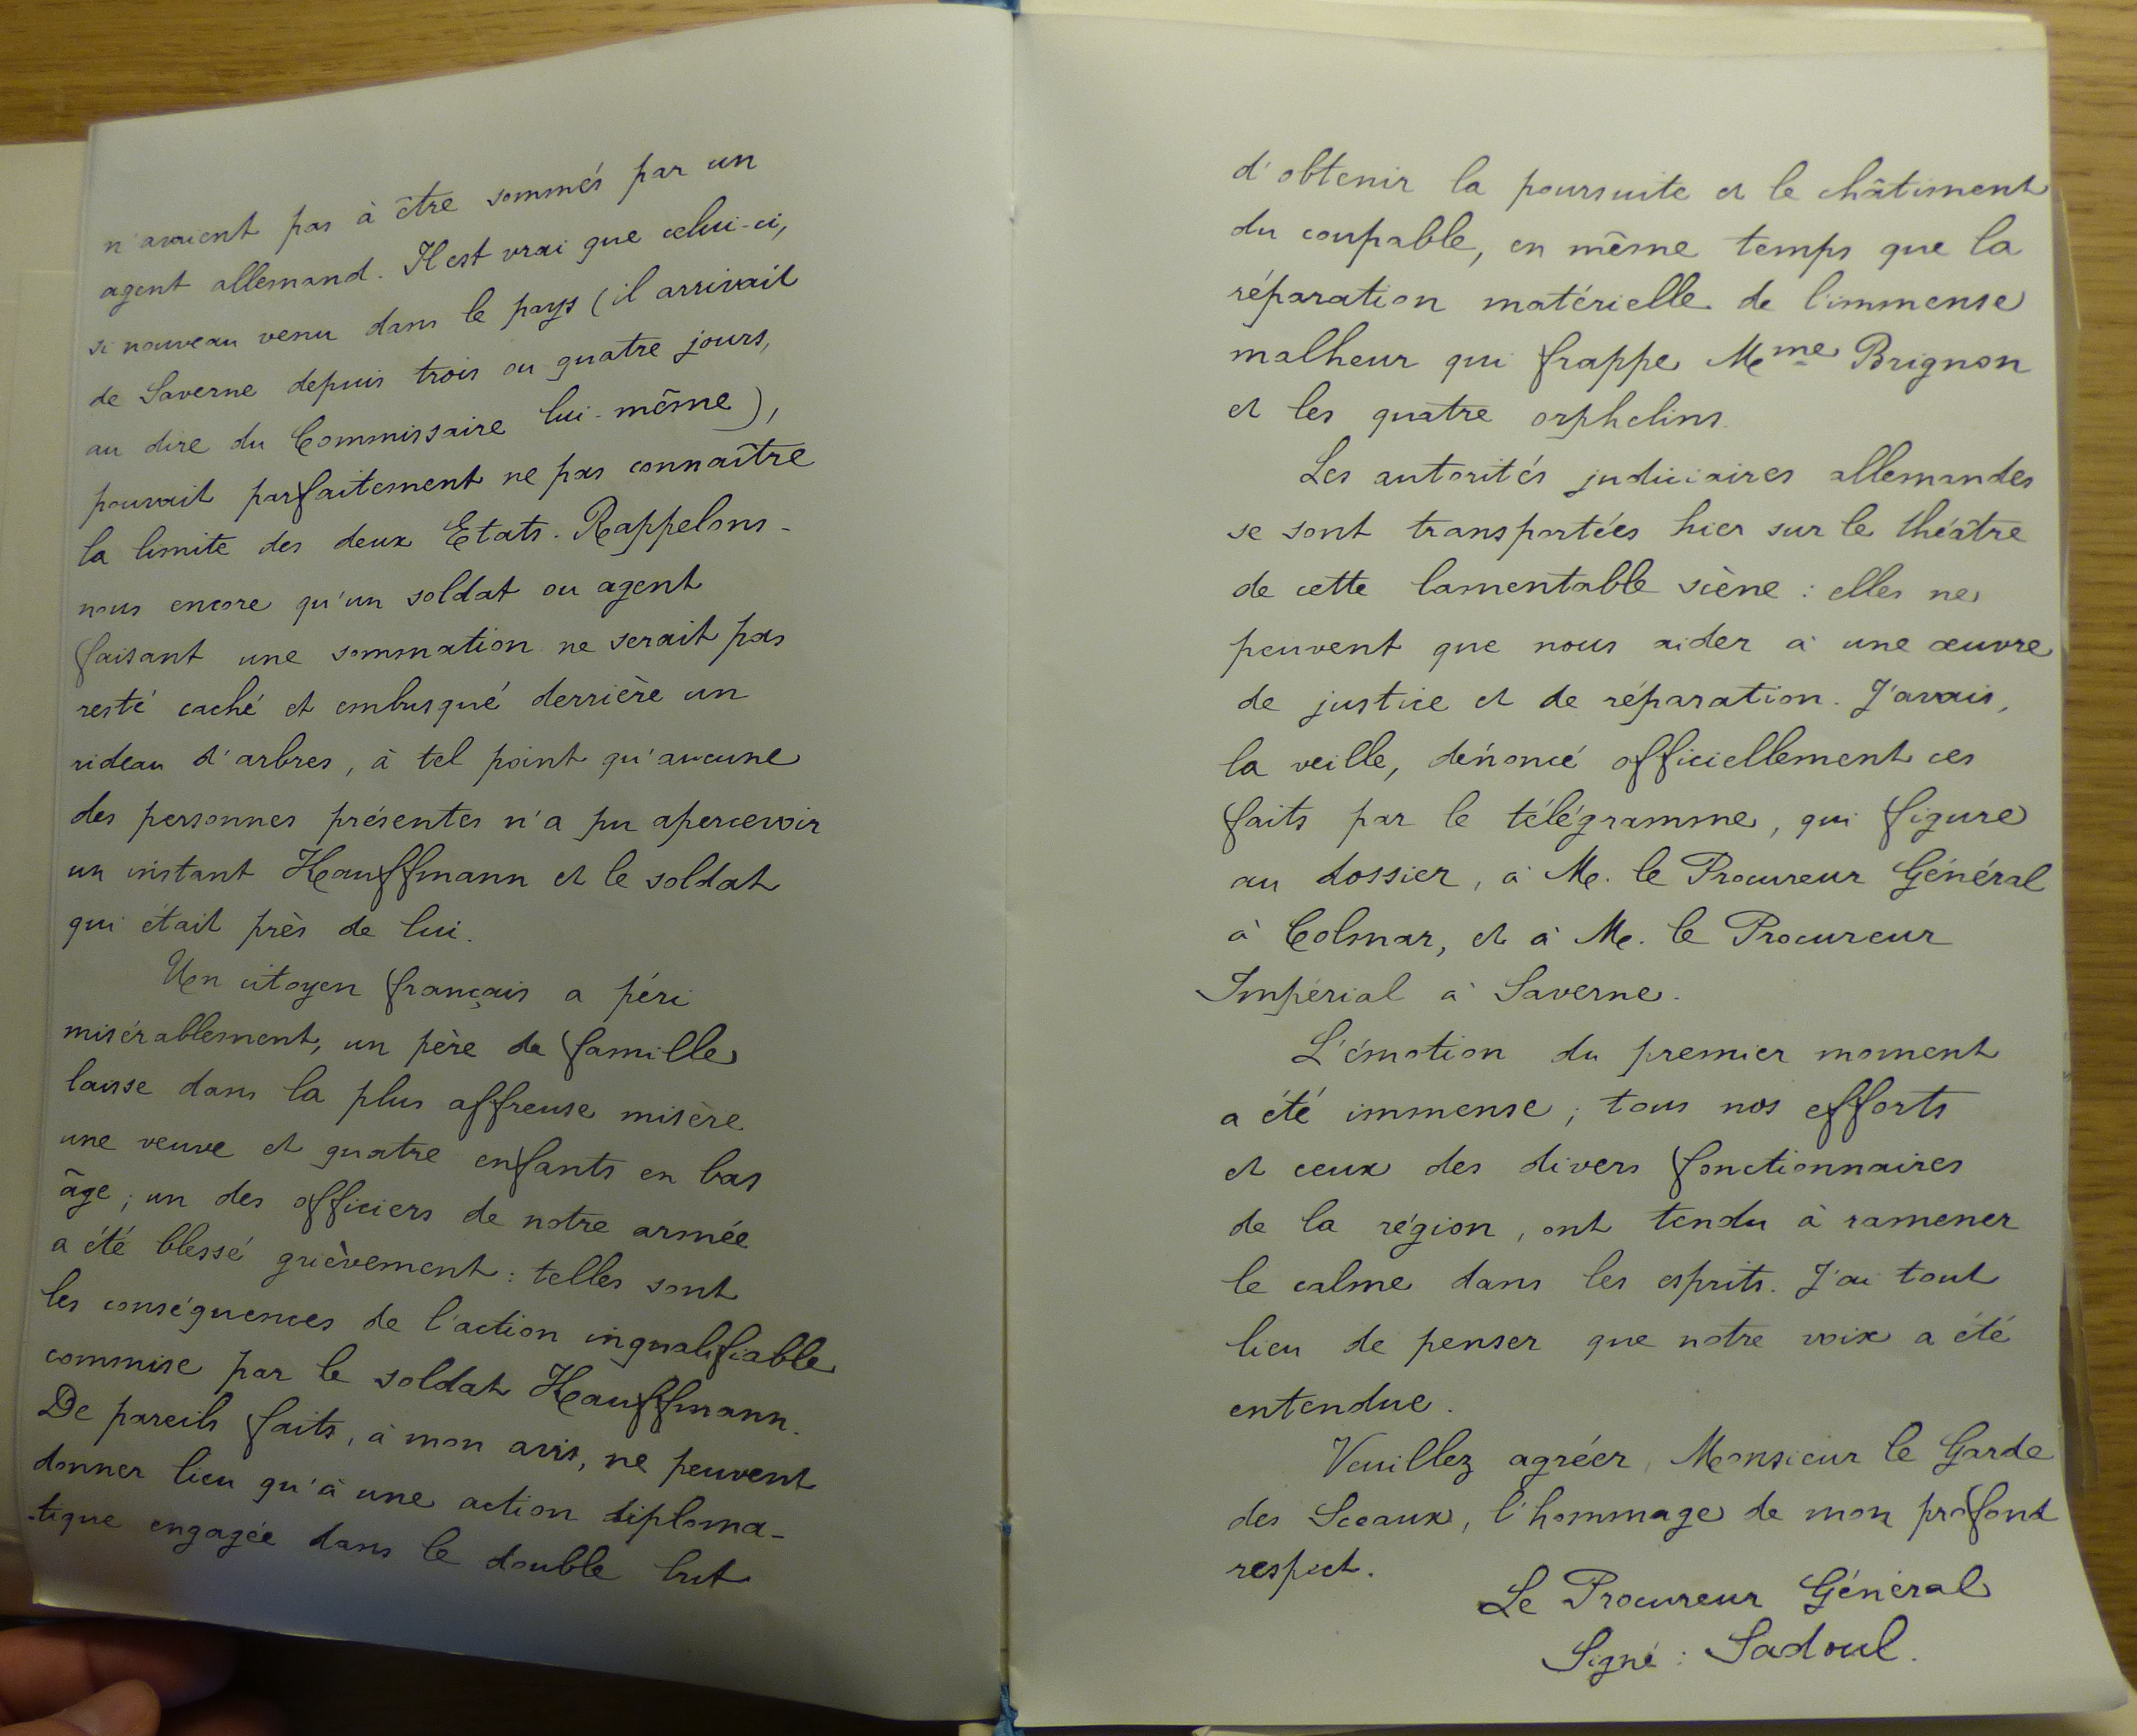 n'avaient pas à être sommés par un
agent allemand. Il est vrai que celui-ci,
si nouveau venu dans le pays (il arrivait
de Saverne depuis trois ou quatre jours,
au dire du Commissaire lui-même),
pouvait parfaitement ne pas connaître
la limite des deux Etats. Rappelons-
nous encore qu'un soldat ou agent
faisant une sommation ne serait pas
resté caché et embusqué derrière un
rideau d'arbres, à tel point qu'aucune
des personnes présentes n'a pu apercevoir
un instant Kauffmann et le soldat
qui était près de lui.
Un citoyen français a péri
misérablement, un père de famille
laisse dans la plus affreuse misère
une veuve et quatre enfants en bas
âge ; un des officiers de notre armée
a été blessé grièvement : telles sont
les conséquences de l'action inqualifiable
commise par le soldat Kauffmann.
De pareils faits, à mon avis, ne peuvent
donner lieu qu'à une action diploma-
-tique engagée dans le double but
d'obtenir la poursuite et le châtiment
du coupable, en même temps que la
réparation matérielle de l'immense
malheur qui frappe Mme Brignon
et les quatre orphelins.
Les autorités judiciaires allemandes
se sont transportées hier sur le théâtre
de cette lamentable scène : elles ne
peuvent que nous aider à une œuvre
de justice et de réparation. J'avais,
la veille, dénoncé officiellement ces
faits par le télégramme, qui figure
au dossier, à M. le Procureur Général
à Colmar, et à M. le Procureur
Impérial à Saverne.
L'émotion du premier moment
a été immense ; tous nos efforts
et ceux des divers fonctionnaires
de la région, ont tendu à ramener
le calme dans les esprits. J'ai tout
lieu de penser que notre voix a été
entendue.
Veuillez agréer, Monsieur le Garde
des Sceaux, l'hommage de mon profond
respect.
Le Procureur Général
Signé : Sadoul.